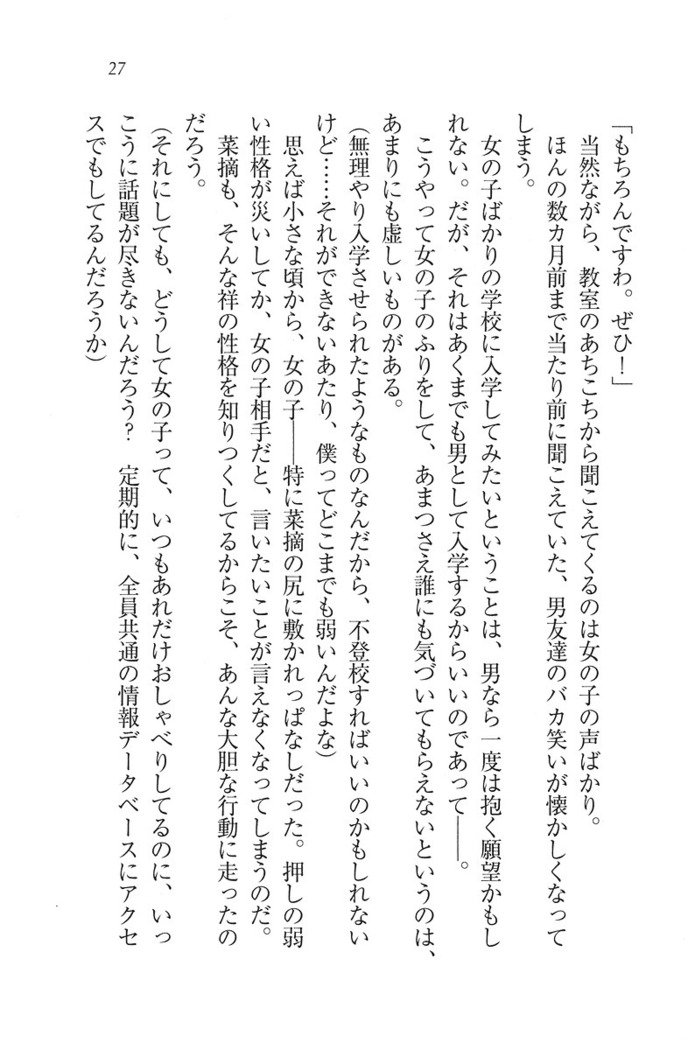 27
「もちろんですわ。ぜひ！」
当然ながら、教室のあちこちから聞こえてくるのは女の子の声ばかり。
ほんの数カ月前まで当たり前に聞こえていた、男友達のバカ笑いが懐かしくなって
しまう。
女の子ばかりの学校に入学してみたいということは、男なら一度は抱く願望かもし
れない。だが、それはあくまでも男として入学するからいいのであって――。
こうやって女の子のふりをして、あまつさえ誰にも気づいてもらえないというのは、
あまりにも虚しいものがある。
（無理やり入学させられたようなものなんだから、不登校すればいいのかもしれない
けど……それができないあたり、僕ってどこまでも弱いんだよな）
思えば小さな頃から、女の子――特に菜摘の尻に敷かれっぱなしだった。押しの弱
い性格が災いしてか、女の子相手だと、言いたいことが言えなくなってしまうのだ。
菜摘も、そんな祥の性格を知りつくしてるからこそ、あんな大胆な行動に走ったの
だろう。
（それにしても、どうして女の子って、いつもあれだけおしゃべりしてるのに、いっ
こうに話題が尽きないんだろう？　定期的に、全員共通の情報データベースにアクセ
スでもしてるんだろうか）